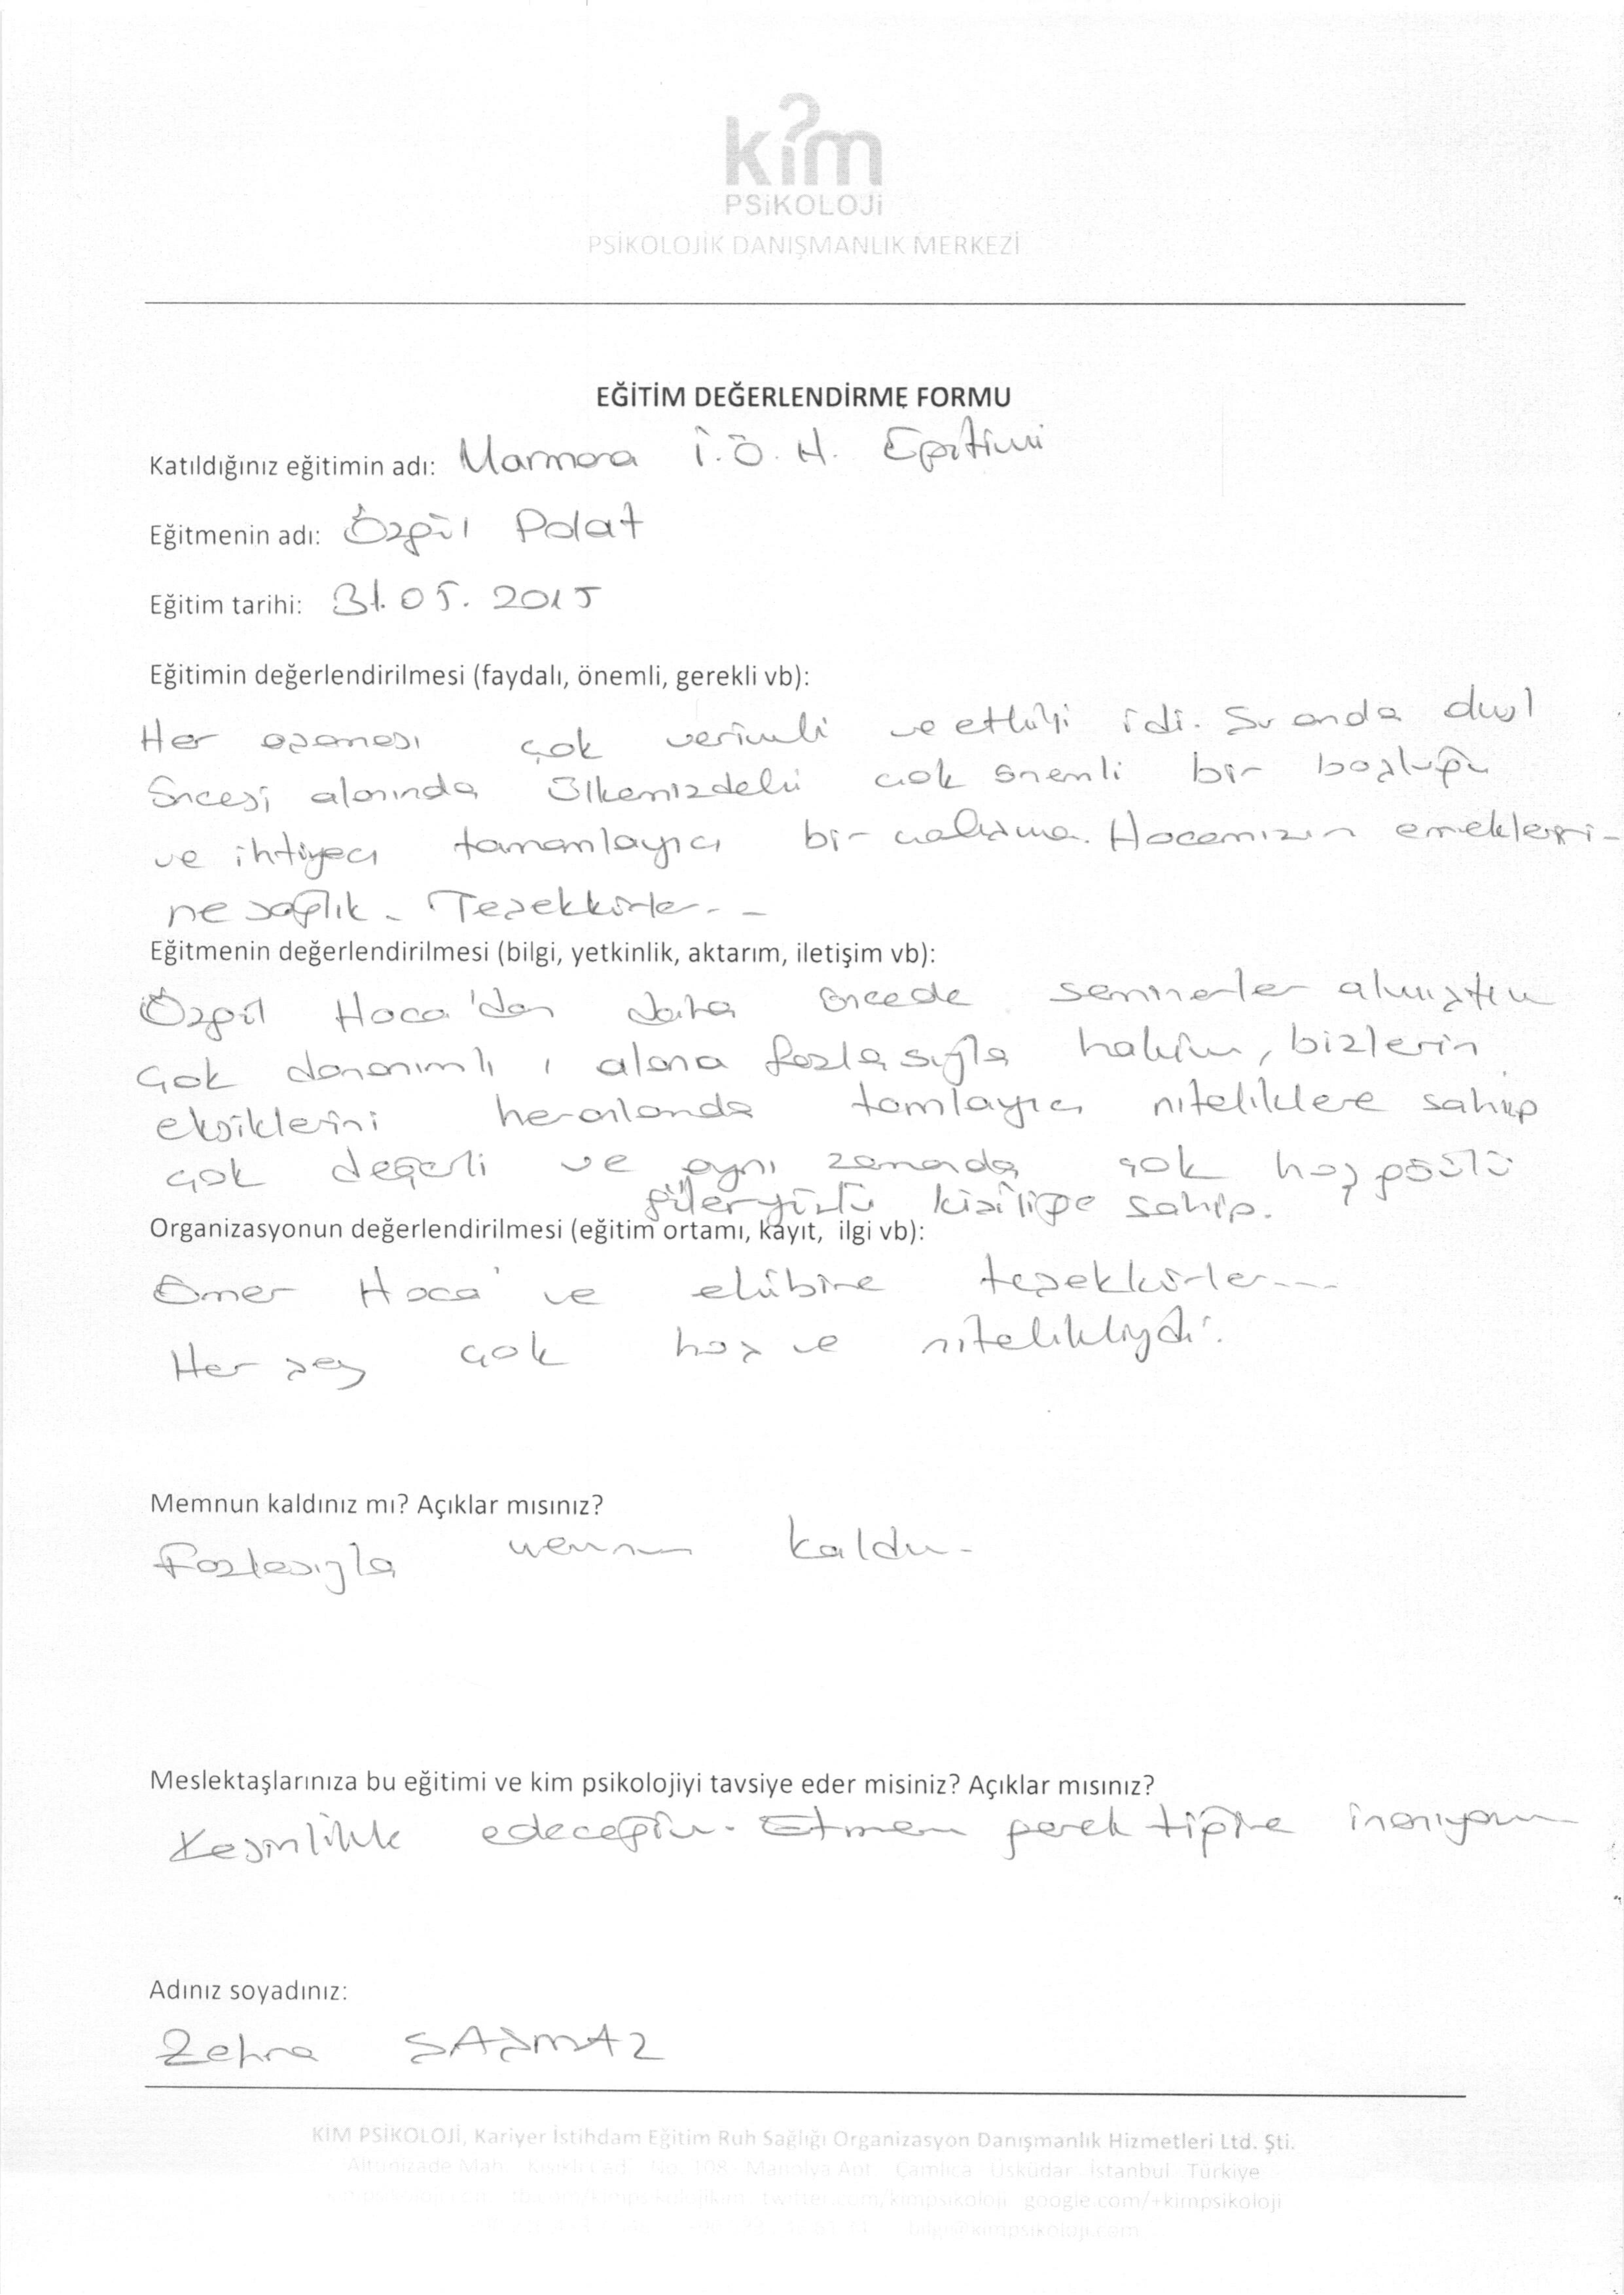 kim
PSİKOLOJİ
PSİKOLOJİK DANIŞMANLIK MERKEZİ
EĞİTİM DEĞERLENDİRME FORMU
Katıldığınız eğitimin adı: Marmara İ.Ö.H. Eğitimi
Eğitmenin adı: Özgül Polat
Eğitim tarihi: 31.05.2015
Eğitimin değerlendirilmesi (faydalı, önemli, gerekli vb):
Her aşaması çok verimli ve etkili idi. Şu anda okul
öncesi alanında ülkemizdeki çok önemli bir boşluğu
ve ihtiyacı tamamlayıcı bir çalışma. Hocamızın emekleri-
ne sağlık. Teşekkürler..
Eğitmenin değerlendirilmesi (bilgi, yetkinlik, aktarım, iletişim vb):
Özgül Hoca'dan daha öncede seminerler almıştım
Çok donanımlı, alana fazlasıyla hakim, bizlerin
eksiklerini her alanda tamlayıcı niteliklere sahip
çok değerli ve aynı zamanda çok hoşgörülü
güleryüzlü kişiliğe sahip.
Organizasyonun değerlendirilmesi (eğitim ortamı, kayıt, ilgi vb):
Ömer Hoca' ve ekibine teşekkürler...
Her şey çok hoş ve nitelikliydi.
Memnun kaldınız mı? Açıklar mısınız?
Fazlasıyla memnun kaldım.
Meslektaşlarınıza bu eğitimi ve kim psikolojiyi tavsiye eder misiniz? Açıklar mısınız?
Kesinlikle edeceğim. Etmem gerektiğine inanıyorum
Adınız soyadınız:
Zehra ŞAŞMAZ
KİM PSİKOLOJİ, Kariyer İstihdam Eğitim Ruh Sağlığı Organizasyon Danışmanlık Hizmetleri Ltd. Şti.
Altunizade Mah. Kısıklı Cad. No: 108 Manolya Apt. Çamlıca Üsküdar İstanbul Türkiye
twitter.com/kimpsikoloji google.com/+kimpsikoloji
bilgi@kimpsikoloji.com